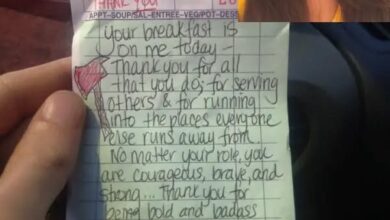 THANK YOU
APPT-SOUP/SAL-ENTREE-VEG/POT-DESS
your breakfast is
on me today -
Thank you for all
that you do; for serving
others & for running
into the places everyone
else runs away from
No matter your role, you
are courageous, brave, and
strong... Thank you for
being bold and badass